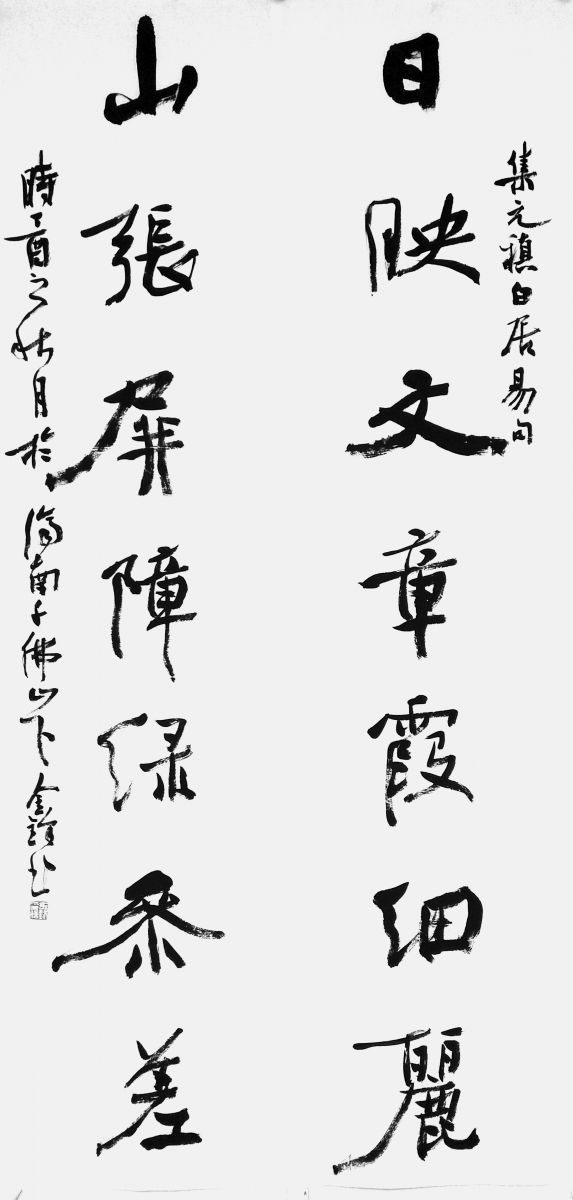 集元稹白居易句
日映文章霞細麗
山張屏障緑参差
時丁酉之秋月於濟南千佛山下金